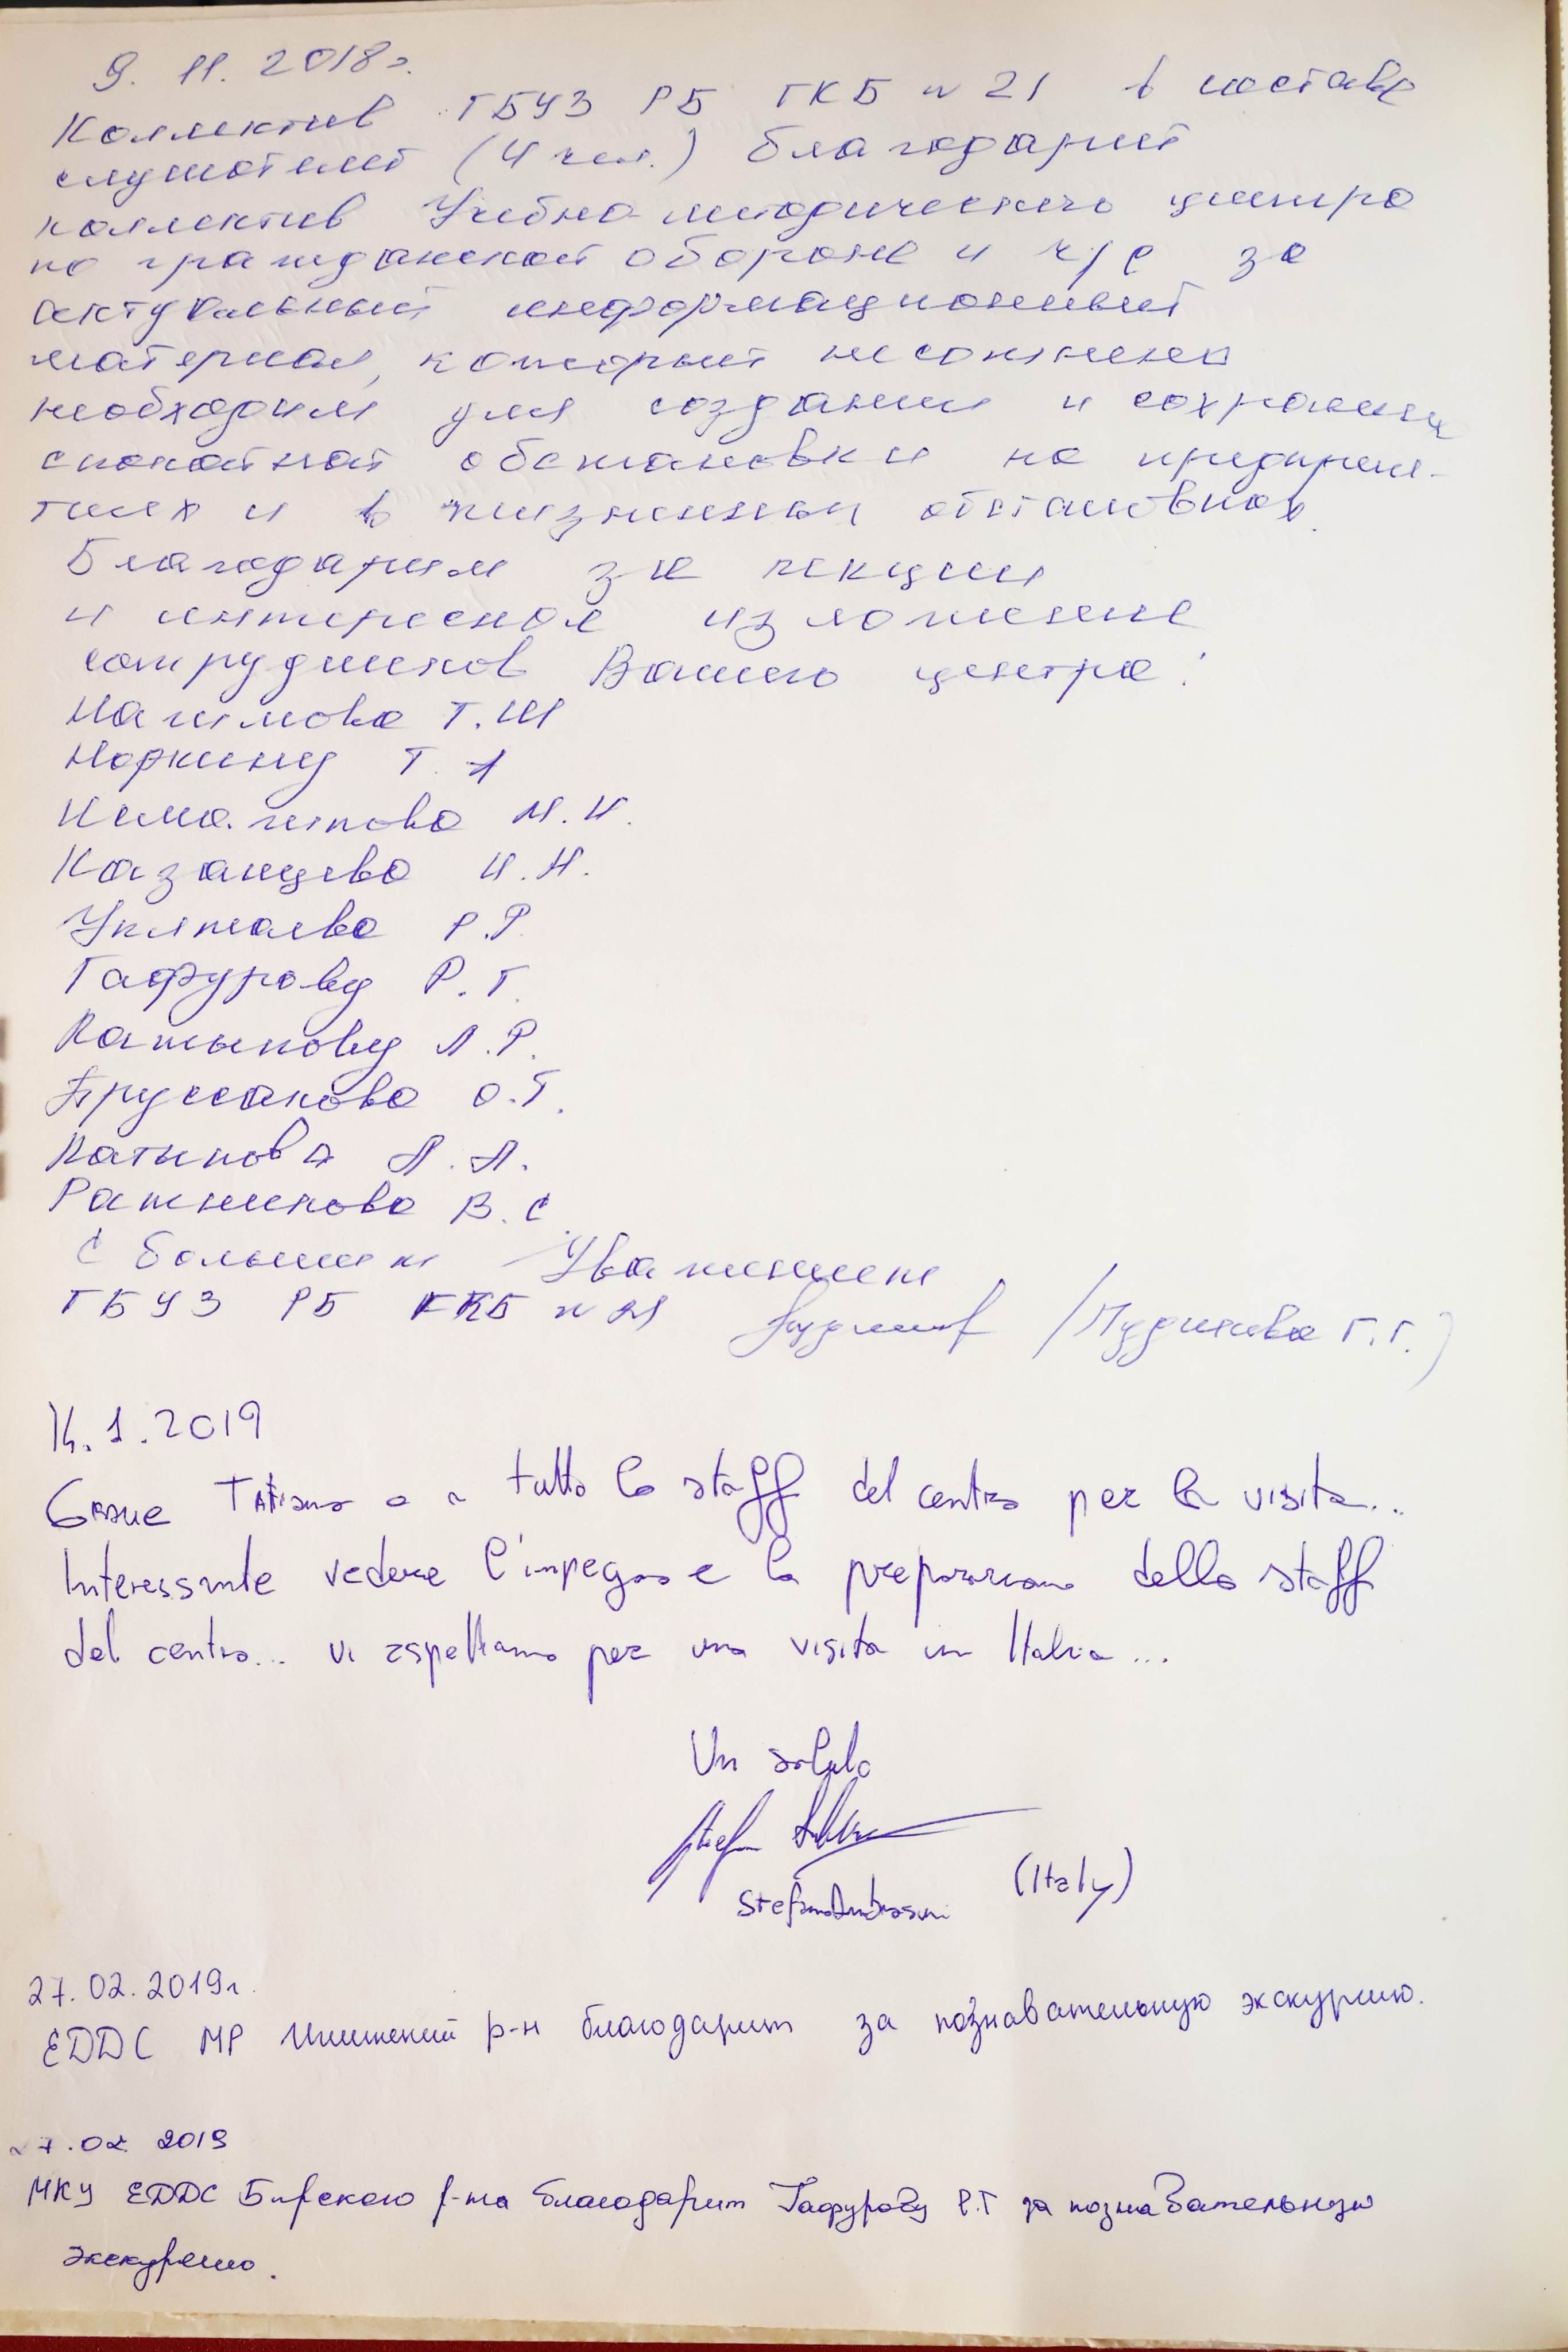 9. 11. 2018г.
Коллектив ГБУЗ РБ ГКБ №21 в составе
слушателей (4 чел.) благодарит
коллектив Учебно-методического центра
по гражданской обороне и ч/с за
актуальный информационный
материал, который несомненно
необходим для создания и сохранения
спокойной обстановки на предприя-
тиях и в жизненных обстановках.
Благодарим за лекции
и интересное изложение
сотрудников Вашего центра:
Т.Ш
Норкину Т. А
Исмагилова И.И.
Казанцева И.Н.
Р.Р.
Гафурову Р.Г.
Латыпову Л.Р.
О.Г.
Латыпова А.А.
Ратникова В.С.
С большим Уважением
ГБУЗ РБ ГКБ №21 Г.Г.)
14.1.2019
Grazie Tatiana e a tutto lo staff del centro per la visita...
Interessante vedere l'impegno e la preparazione dello staff
del centro... vi aspettiamo per una visita in Italia...
Un saluto
Stefano Ambrosini (Italy)
27.02.2019г.
ЕДДС МР р-н благодарит за познавательную экскурсию.
27.02 2019
МКУ ЕДДС Бирского р-на благодарит Гафурову Р.Г за познавательную
экскурсию.